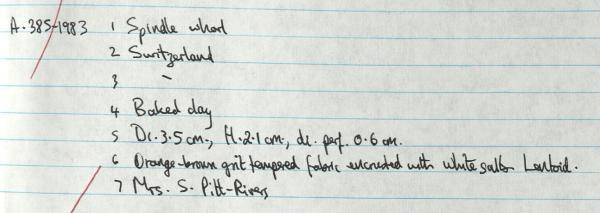 A.385-1983 1 Spindle whorl
2 Switzerland
3 -
4 Baked clay
5 Di. 3.5cm., H. 2.1cm., di. perf. 0.6cm.
6 Orange-brown grit tempered fabric encrusted with white salts. Lentoid.
7 Mrs. S. Pitt-Rivers